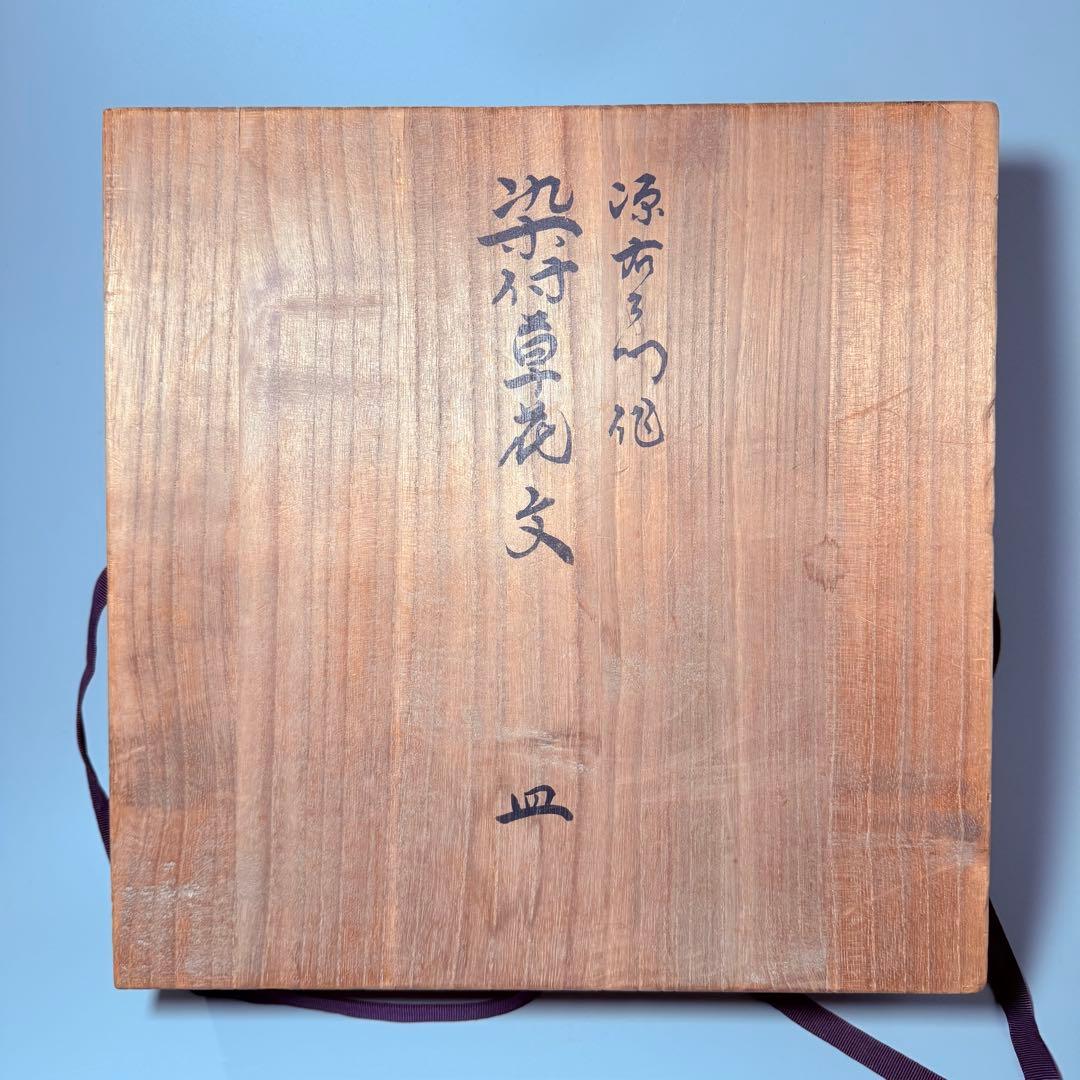 源右エ門作
染付草花文
皿